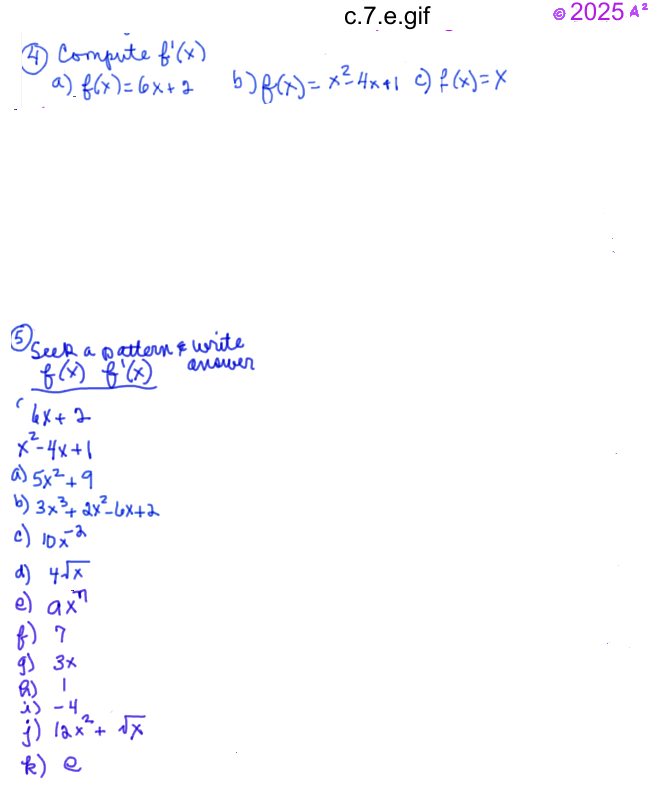 c.7.e.gif
© 2025 A²
④ Compute f'(x)
a) f(x) = 6x + 2 b) f(x) = x² - 4x + 1 c) f(x) = x
⑤ Seek a pattern & write answer
f(x) f'(x)
6x + 2
x² - 4x + 1
a) 5x² + 9
b) 3x³ + 2x² - 6x + 2
c) 10x⁻²
d) 4√x
e) axⁿ
f) 7
g) 3x
h) 1
i) -4
j) 12x² + √x
k) e